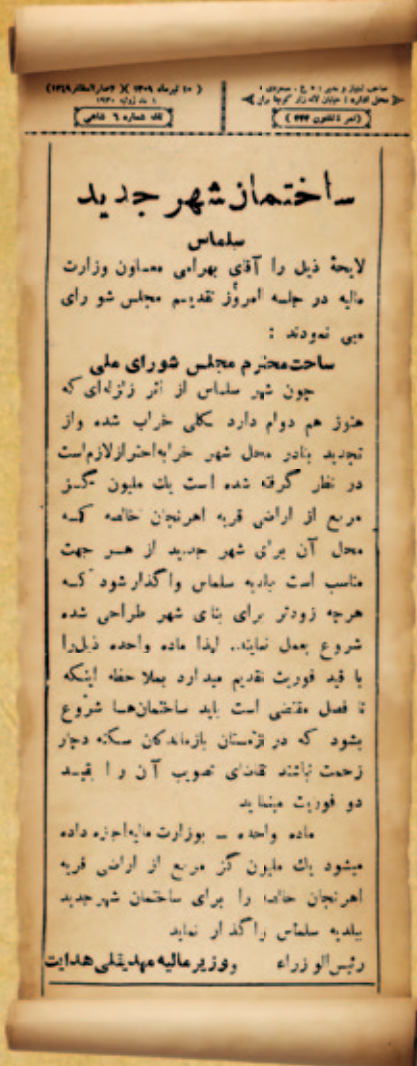 صاحب امتیاز و مدیر :
محل اداره : خیابان لاله زار
( ۱۰ تیرماه ۱۳۰۹ )( ۴ صفرالمظفر ۱۳۴۹ )
۱ ماه ژوئیه ۱۹۳۰
تک شماره ۶ شاهی
ساختمان شهر جدید
سلماس
لایحهٔ ذیل را آقای بهرامی معاون وزارت
مالیه در جلسه امروز تقدیم مجلس شو رای
می نمودند :
ساحت محترم مجلس شورای ملی
چون شهر سلماس از اثر زلزله‌ای که
هنوز هم دوام دارد بکلی خراب شده واز
تجدید بنادر محل شهر خرابه احتراز لازم است
در نظر گرفته شده است یك ملیون گـز
مربع از اراضی قریه اهرنجان خالصه کـه
محل آن برای شهر جدید از هـر جهت
مناسب است ببلدیه سلماس واگذار شود کـه
هرچه زودتر برای بنای شهر طراحی شده
شروع بعمل نمایند. لهذا ماده واحده ذیل را
با قید فوریت تقدیم میدارد بملاحظه اینکه
تا فصل مقتضی است باید ساختمان‌هـا شروع
بشود که در زمستان بازماندکان سکنه دچار
زحمت نباشند تقاضای تصویب آن را بقیـد
دو فوریت مینماید
ماده واحده ــ بوزارت مالیه اجازه داده
میشود یك ملیون گز مربع از اراضی قریه
اهرنجان خالصه را برای ساختمان شهر جدید
ببلدیه سلماس واگذار نماید
رئیس الوزراء و وزیر مالیه مهدیقلی هدایت